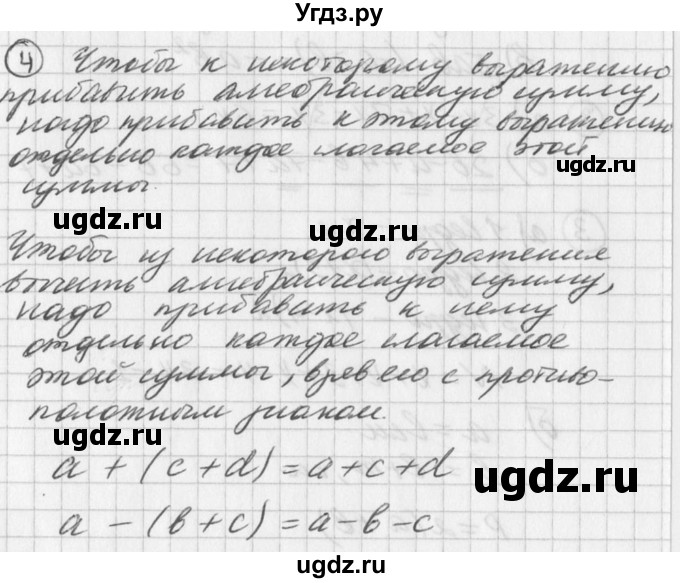 Угдз.ру
④ Чтобы к некоторому выражению
прибавить алгебраическую сумму,
надо прибавить к этому выражению
отдельно каждое слагаемое этой
суммы.
ugdz.ru ugdz.ru
Чтобы из некоторого выражения
вычесть алгебраическую сумму,
надо прибавить к нему
отдельно каждое слагаемое
этой суммы, взяв его с противо-
положным знаком.
ugdz.ru ugdz.ru
a + (c + d) = a + c + d
a - (b + c) = a - b - c
ugdz.ru